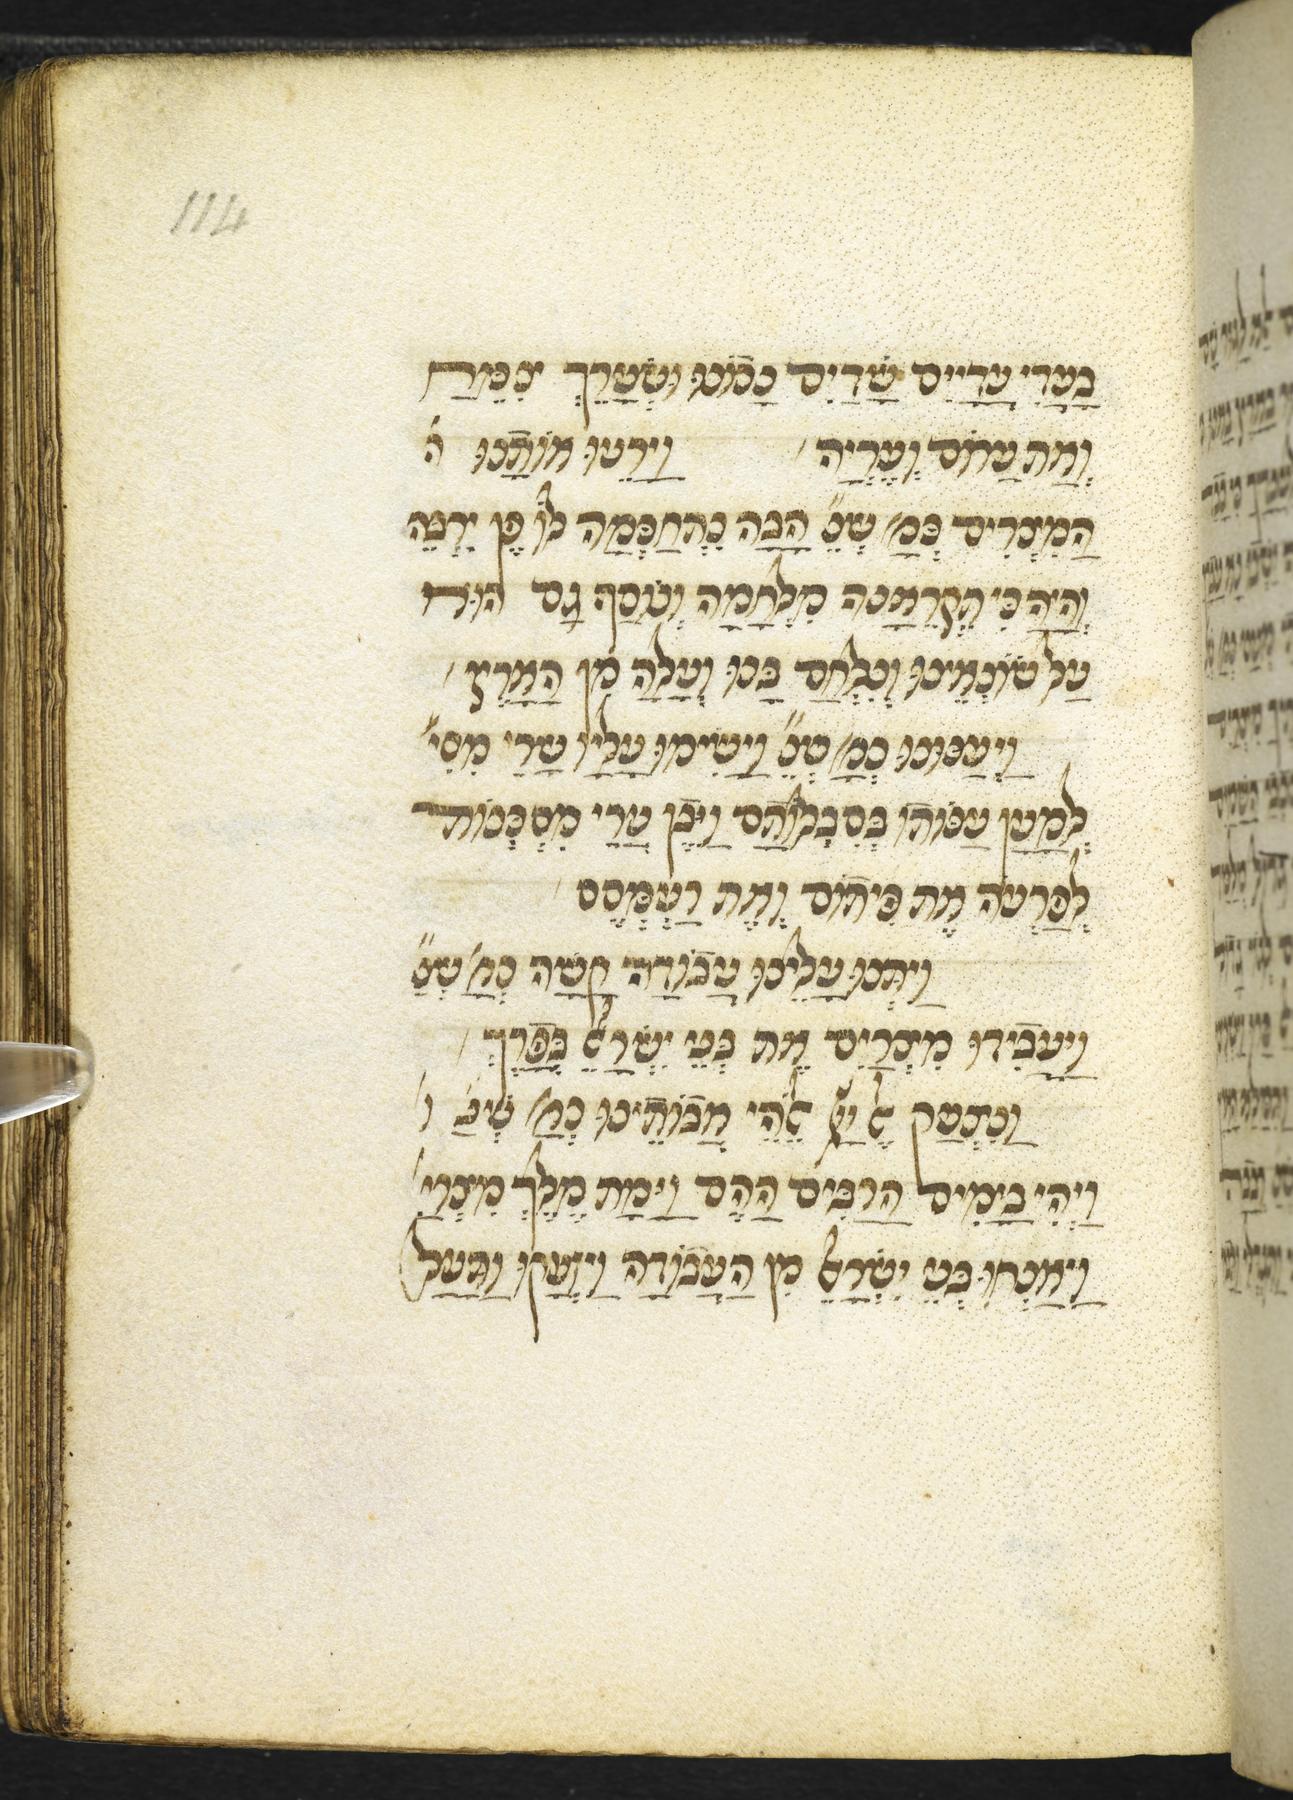 114
בַעֲדִי עֲדָיִים שָׁדַיִם נָכֹונוּ וּשְׂעָרֵךְ צִמֵּחַ
וְאַתְּ עֵרוֹם וְעֶרְיָה׳ וַיָּרֵעוּ אוֹתָנוּ ה׳
הַמִצְרִים כְּמָ׳ שֶׁנֶ״ הָבָה נִתְחַכְּמָה לוֹ פֶּן יִרְבֶּה
וְהָיָה כִּי תִקְרֶאנָה מִלְחָמָה וְנוֹסַף גַם הוּא
עַל שׂוֹנְאֵינוּ וְנִלְחַם בָּנוּ וְעָלָה מִן הָאָרֶץ׳
וַיְעַנּוּנוּ כְּמָ׳ שֶׁנֶ״ וַיָשִׂימוּ עָלָיו שָׂרֵי מִסִי״
לְמַעַן עַנּוֹתוֹ בְּסִבְלוֹתָם וַיִּבֶן עָרֵי מִסְכְּנוֹת
לְפַרְעֹה אֶת פִּיתוֹם וְאֶת רַעַמְסֵס׳
וַיִתְּנוּ עָלֵינוּ עֲבוֹדָה קָשָׁה כְּמָ׳ שֶׁנֶ״
וַיַעֲבִידוּ מִצְרַיִם אֶת בְּנֵי יִשְׂרָאֵל בְּפָרֶךְ׳
וַנִצְעַק אֶל יְיָ אֱלֹהֵי אֲבוֹתֵינוּ כְּמָ׳ שֶׁנֶ׳ ו׳
וַיְהִי בַיָמִים הָרַבִּים הָהֵם וַיָּמָת מֶלֶךְ מִצְרַיִ׳
וַיֵאָנְחוּ בְּנֵי יִשְׂרָאֵל מִן הָעֲבוֹדָה וַיִזְעָקוּ וַתַּעַל